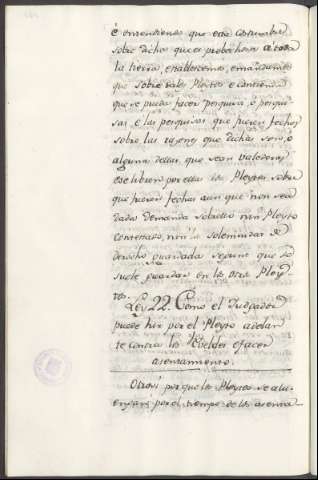 é entendiendo que esta costumbre
sobre dicha que es probechosa a toda
la tierra, establecemos, é mandamos
que sobre tales Pleytos é contiendas
que se pueda facer pesquisa, ó pesqui-
sas, é las pesquisas que fueren fechas
sobre las razones que dichas son, ó
alguna dellas, que sean valederas
é se libren por ellas los Pleytos sobre
que fueren fechas aun que non sea
dada demanda sobrello nin Pleyto
contestado, nin la solemnidad de
derecho guardada segunt que se
suele guardar en los otros Pley
tos.
Ley 22. Como el Judgador
puede hir por el Pleyto adelan
te contra los Rebeldes é facer
asentamiento.
Otrosi porque los Pleytos se alu-
engan por el tiempo de los asenta-